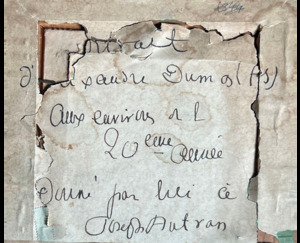 Portrait
d'Alexandre Dumas (fils)
aux environs de l
20ème année
Donné par lui à
Joseph Autran